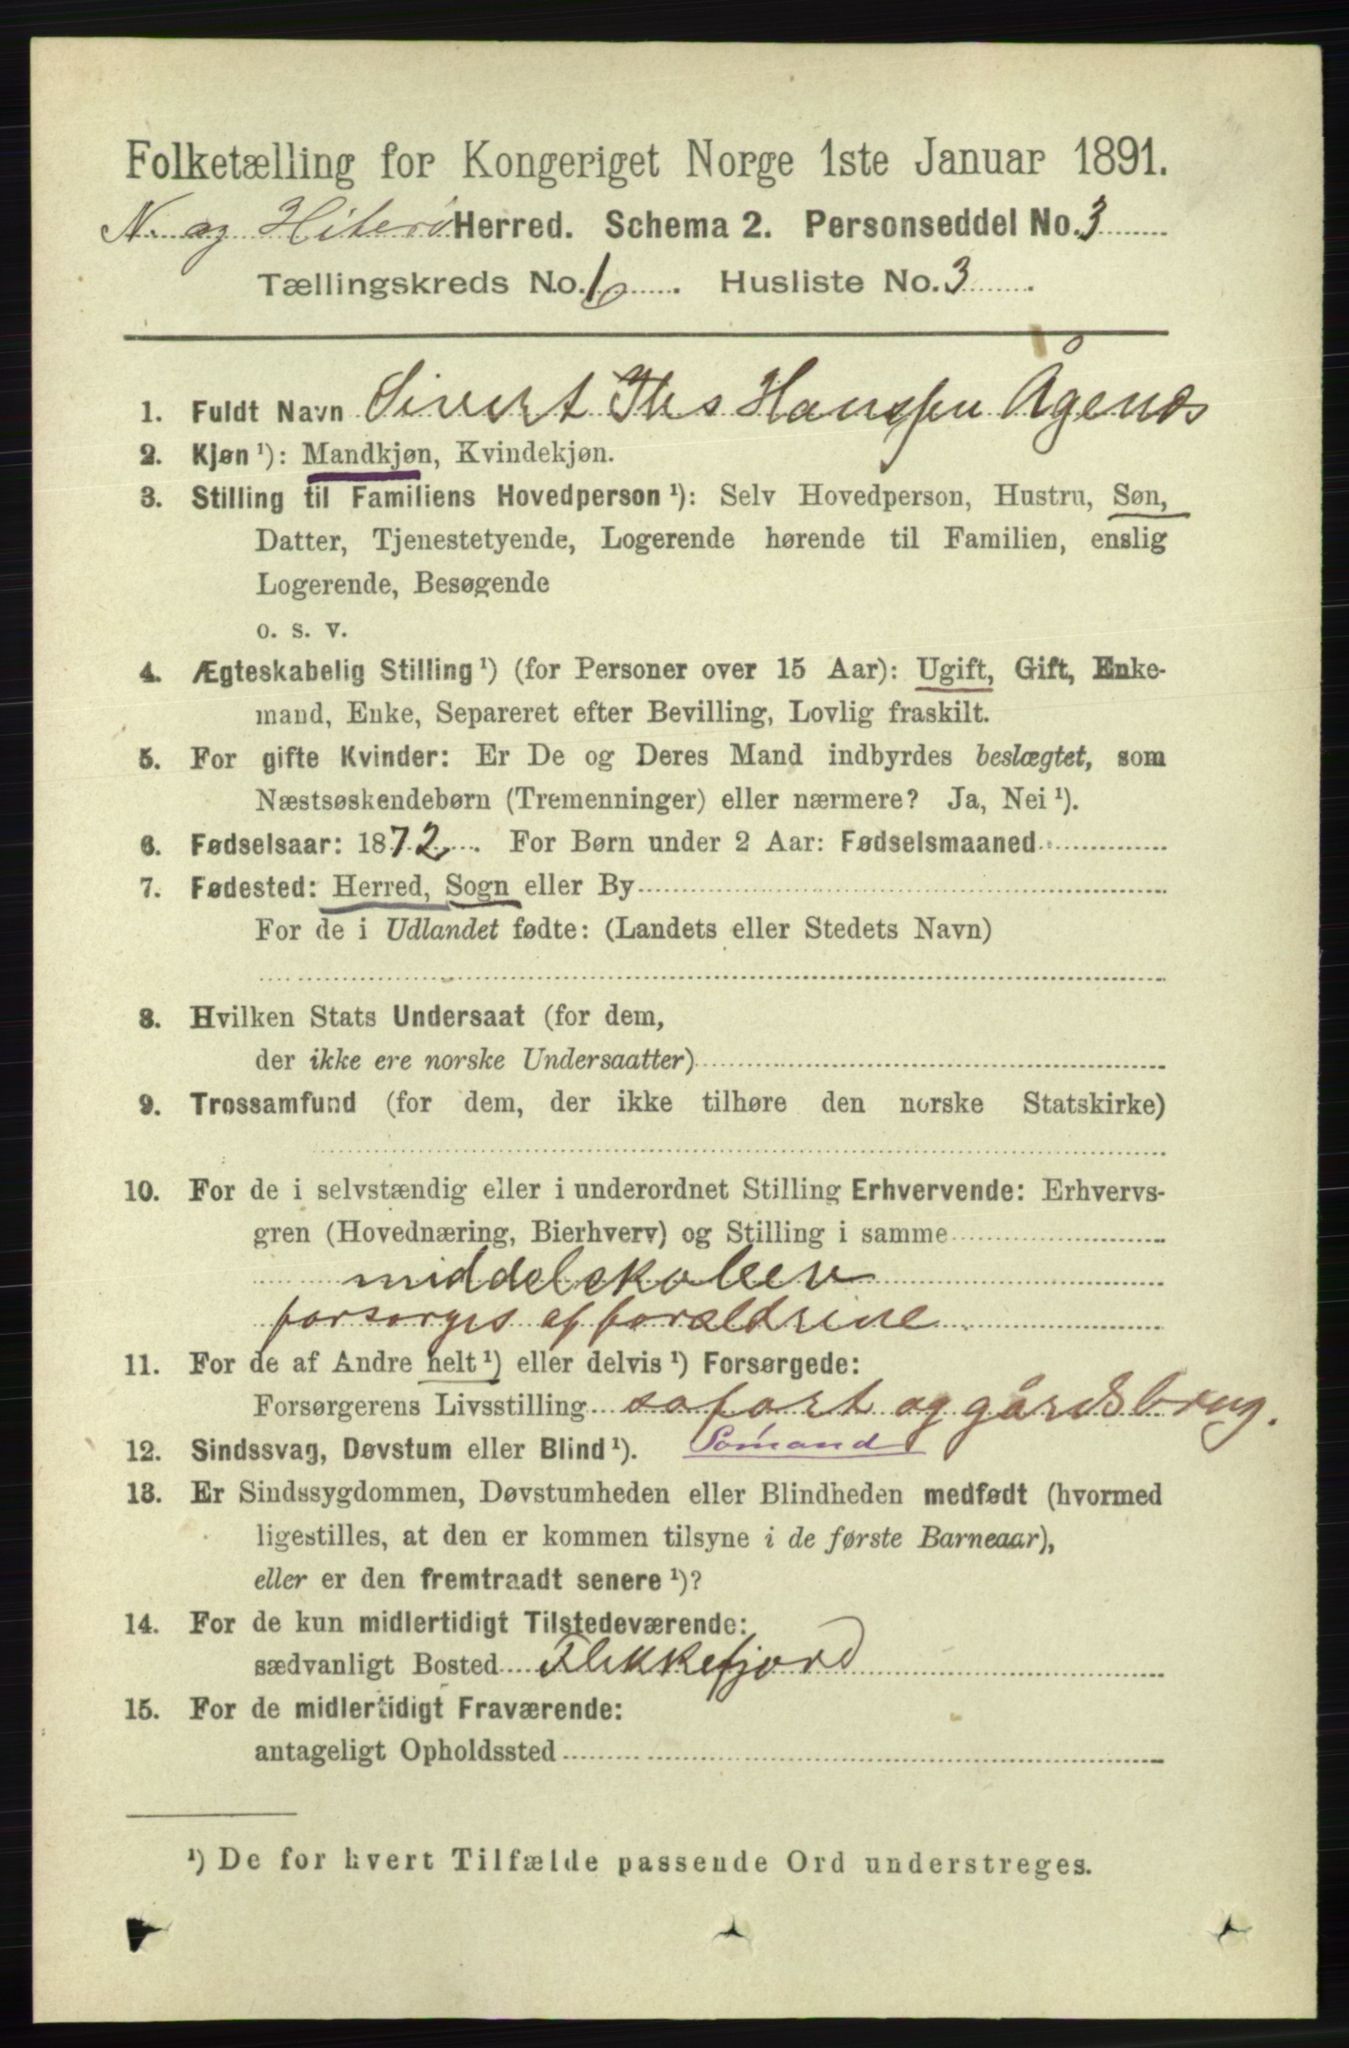 Folketælling for Kongeriget Norge 1ste Januar 1891.
N. og Hiterø Herred. Schema 2. Personseddel No. 3
Tællingskreds No. 6. Husliste No. 3.
1. Fuldt Navn Sivert Ths Hanssen Ågenæs
2. Kjøn ¹): Mandkjøn, Kvindekjøn.
3. Stilling til Familiens Hovedperson ¹): Selv Hovedperson, Hustru, Søn,
Datter, Tjenestetyende, Logerende hørende til Familien, enslig
Logerende, Besøgende
o. s. v.
4. Ægteskabelig Stilling ¹) (for Personer over 15 Aar): Ugift, Gift, Enke-
mand, Enke, Separeret efter Bevilling, Lovlig fraskilt.
5. For gifte Kvinder: Er De og Deres Mand indbyrdes beslægtet, som
Næstsøskendebørn (Tremenninger) eller nærmere? Ja, Nei ¹).
6. Fødselsaar: 1872. For Børn under 2 Aar: Fødselsmaaned
7. Fødested: Herred, Sogn eller By
For de i Udlandet fødte: (Landets eller Stedets Navn)
8. Hvilken Stats Undersaat (for dem,
der ikke ere norske Undersaatter)
9. Trossamfund (for dem, der ikke tilhøre den norske Statskirke)
10. For de i selvstændig eller i underordnet Stilling Erhvervende: Erhvervs-
gren (Hovednæring, Bierhverv) og Stilling i samme
middelskolelev
forsørges af forældrene
11. For de af Andre helt ¹) eller delvis ¹) Forsørgede:
Forsørgerens Livsstilling søfart og gårdsbrug.
12. Sindssvag, Døvstum eller Blind ¹). Sømand
13. Er Sindssygdommen, Døvstumheden eller Blindheden medfødt (hvormed
ligestilles, at den er kommen tilsyne i de første Barneaar),
eller er den fremtraadt senere ¹)?
14. For de kun midlertidigt Tilstedeværende:
sædvanligt Bosted Flekkefjord
15. For de midlertidigt Fraværende:
antageligt Opholdssted
¹) De for hvert Tilfælde passende Ord understreges.